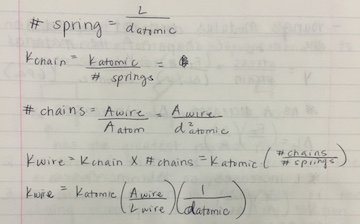 # spring = L / d atomic
Kchain = Katomic / # springs =
# chains = Awire / Aatom = Awire / d²atomic
Kwire = Kchain X # chains = Katomic (# chains / # springs)
Kwire = Katomic (Awire / Lwire) (1 / datomic)